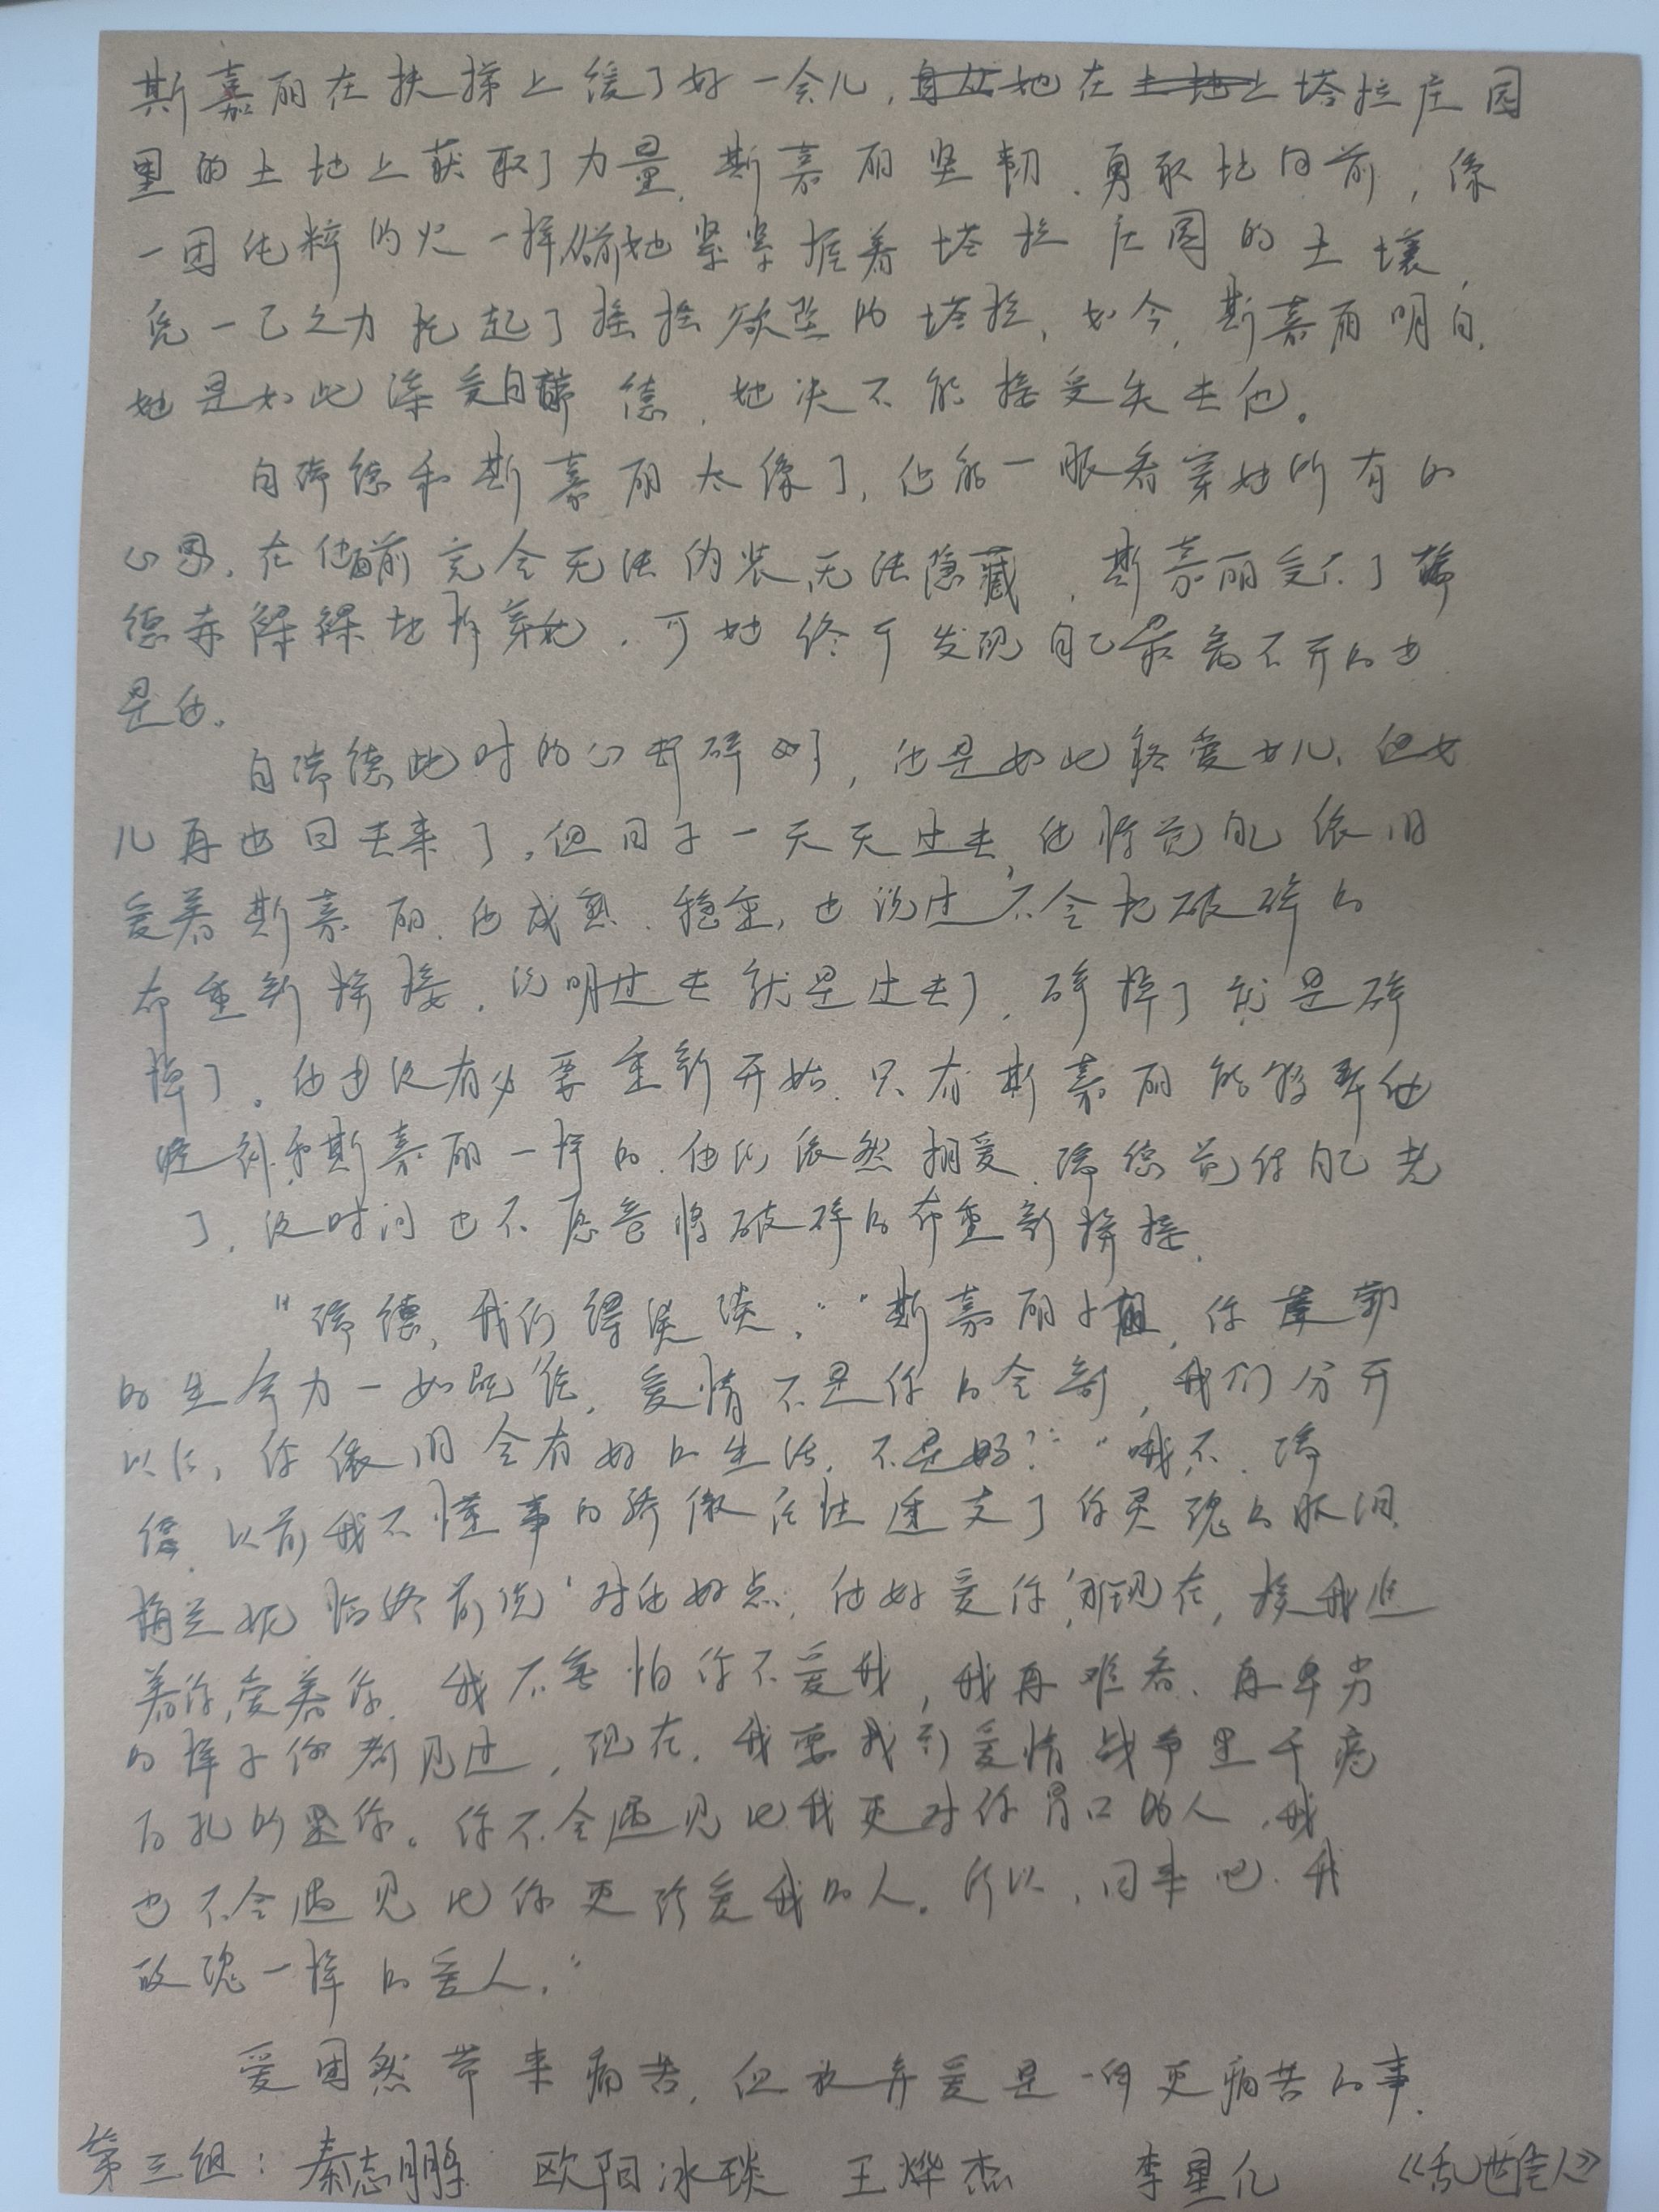 斯嘉丽在扶梯上缓了好一会儿，她在塔拉庄园
里的土地上获取了力量，斯嘉丽坚韧、勇敢地向前，像
一团纯粹的火一样，她紧紧握着塔拉庄园的土壤，
凭一己之力托起了摇摇欲坠的塔拉，如今，斯嘉丽明白，
她是如此深爱白瑞德，她决不能接受失去他。
白瑞德和斯嘉丽太像了，他能一眼看穿她所有的
心思，在他面前完全无法伪装、无法隐藏，斯嘉丽受不了瑞
德赤裸裸地拆穿她，可她终于发现自己最离不开的也
是他。
白瑞德此时的心都碎了，他是如此疼爱女儿，但女
儿再也回去来了，但日子一天天过去，他惊觉自己依旧
爱着斯嘉丽，他成熟、稳重，也说过不会把破碎的
布重新拼接，说明过去就是过去了，碎掉了就是碎
掉了。他也没有必要重新开始，只有斯嘉丽能够帮他
缝补，和斯嘉丽一样的，他们依然相爱，瑞德觉得自己老
了，没时间也不愿意将破碎的布重新拼接。
“瑞德，我们得谈谈。”“斯嘉丽小姐，你
的生命力一如既往，爱情不是你的全部，我们分开
以后，你依旧会有好的生活，不是吗？”“哦，不，瑞
德，以前我不懂事的骄傲任性透支了你灵魂的
梅兰妮临终前说‘对他好点，他好爱你’，那现在，换我追
着你，爱着你，我不害怕你不爱我，我再难看、再卑劣
的样子你都见过，现在，我要我们爱情战争里千疮
百孔的是你。你不会遇见比我更对你胃口的人，我
也不会遇见比你更珍爱我的人。所以，回来吧，我
玫瑰一样的爱人。”
爱固然带来痛苦，但放弃爱是一件更痛苦的事。
第三组：秦志鹏 欧阳冰琰 王烨杰 李星亿 《乱世佳人》